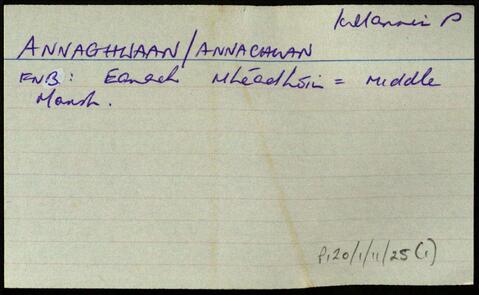 Killannin P
ANNAGHWAAN/ANNACHWAN
FNB: Eanach Mhéadhóin = Middle
Marsh.
P120/1/11/25(1)